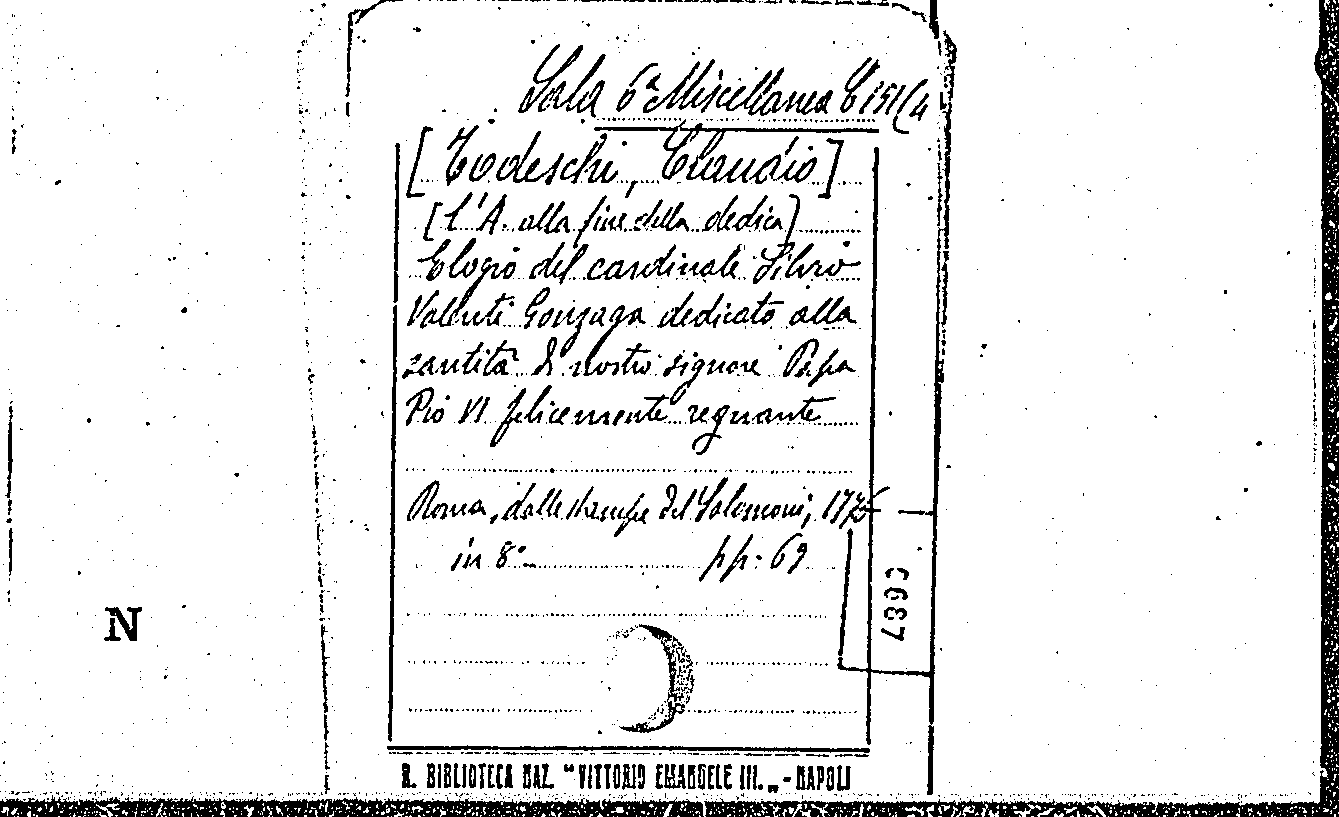 Sala 6ª Miscellanea C 151(4
[Todeschi, Claudio]
[L'A. alla fine della dedica]
Elogio del cardinale Silvio
Valenti Gonzaga dedicato alla
santità di nostro signore Papa
Pio VI felicemente regnante
Roma, dalle stampe del Salomoni, 1776
in 8º pp. 69
N
R. BIBLIOTECA NAZ. "VITTORIO EMANUELE III." - NAPOLI